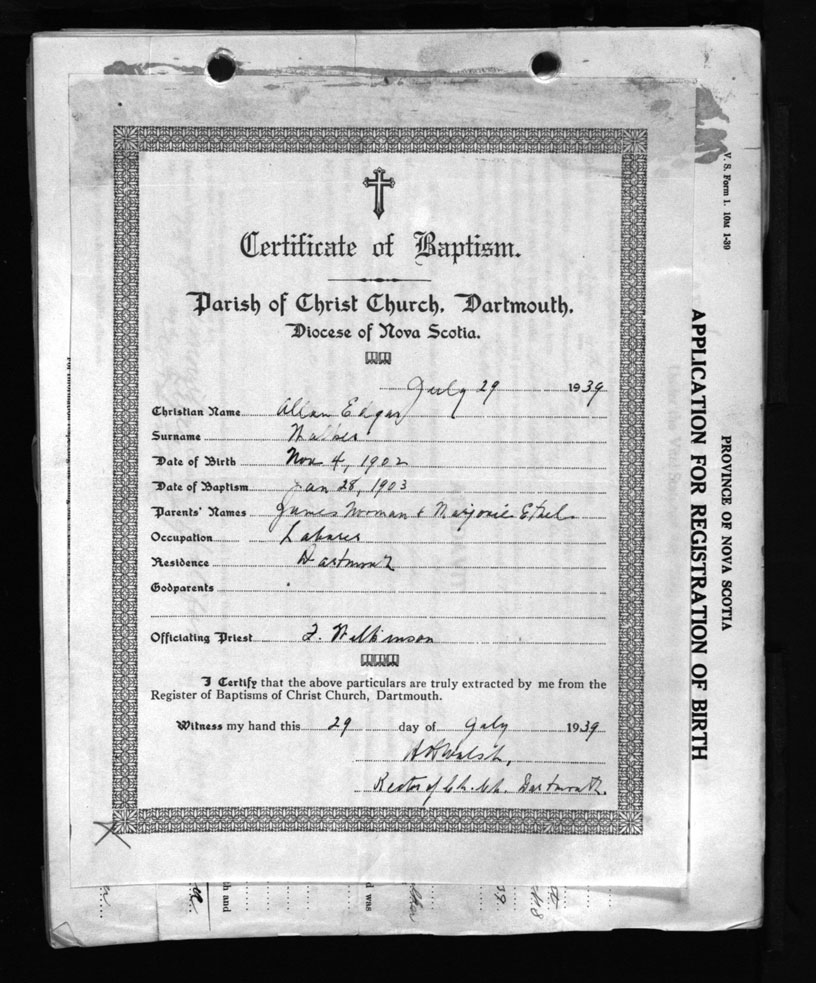 Certificate of Baptism.
Parish of Christ Church, Dartmouth.
Diocese of Nova Scotia.
July 29 1939
Christian Name Allan Edgar
Surname Walker
Date of Birth Nov 4, 1902
Date of Baptism Jan 28, 1903
Parents' Names James Norman & Marjorie Ethel
Occupation Laborer
Residence Dartmouth
Godparents
Officiating Priest F. Wilkinson
I Certify that the above particulars are truly extracted by me from the
Register of Baptisms of Christ Church, Dartmouth.
Witness my hand this 29 day of July 1939
Walsh,
Rector of Ch. Ch. Dartmouth.
V. S. Form 1. 10M 1-39
PROVINCE OF NOVA SCOTIA
APPLICATION FOR REGISTRATION OF BIRTH
th and
d was